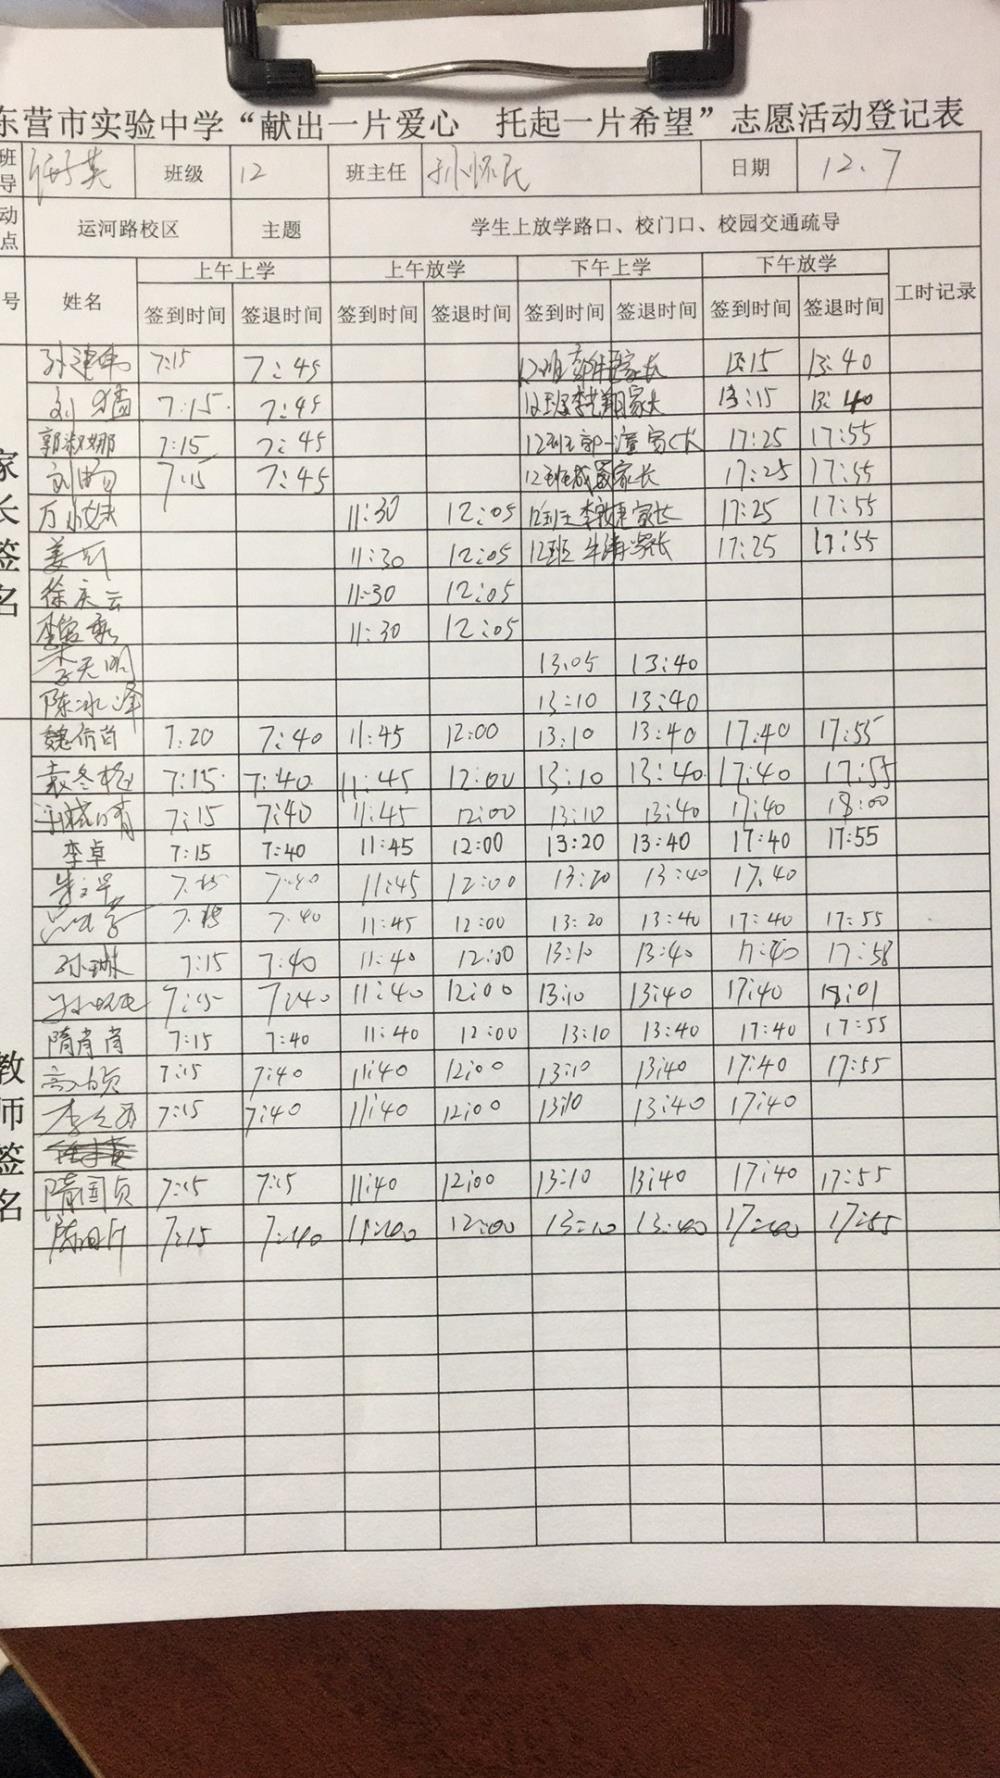 东营市实验中学“献出一片爱心 托起一片希望”志愿活动登记表
班导 班级 12 班主任 孙怀民 日期 12.7
动点 运河路校区 主题 学生上放学路口、校门口、校园交通疏导
号 姓名 上午上学 上午放学 下午上学 下午放学 工时记录
签到时间 签退时间 签到时间 签退时间 签到时间 签退时间 签到时间 签退时间
家长签名
7:15 7:45 12班 家长 13:15 13:40
刘 7:15 7:45 12班 家长 13:15 13:40
郭淑娜 7:15 7:45 12班 郭一 家长 17:25 17:55
刘 7:15 7:45 12班 家长 17:25 17:55
万 11:30 12:05 12班 李 家长 17:25 17:55
姜 11:30 12:05 12班 牛 家长 17:25 17:55
徐庆云 11:30 12:05
11:30 12:05
李天明 13:05 13:40
陈冰泽 13:10 13:40
教师签名
魏 7:20 7:40 11:45 12:00 13:10 13:40 17:40 17:55
袁冬梅 7:15 7:40 11:45 12:00 13:10 13:40 17:40 17:55
7:15 7:40 11:45 12:00 13:10 13:40 17:40 18:00
李卓 7:15 7:40 11:45 12:00 13:20 13:40 17:40 17:55
7:15 7:40 11:45 12:00 13:20 13:40 17:40
7:15 7:40 11:45 12:00 13:20 13:40 17:40 17:55
孙琳 7:15 7:40 11:40 12:00 13:10 13:40 17:40 17:58
孙怀民 7:15 7:40 11:40 12:00 13:10 13:40 17:40 18:01
隋肖肖 7:15 7:40 11:40 12:00 13:10 13:40 17:40 17:55
7:15 7:40 11:40 12:00 13:10 13:40 17:40 17:55
李 7:15 7:40 11:40 12:00 13:10 13:40 17:40
隋国贞 7:15 7:15 11:40 12:00 13:10 13:40 17:40 17:55
陈 7:15 7:40 11:40 12:00 13:10 13:40 17:40 17:55